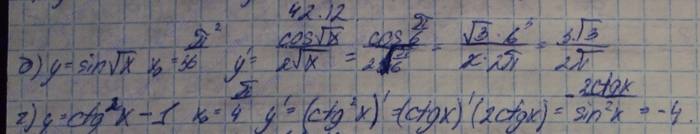 42.12.
б) y=sin√x x₀=π²/36 y'=cos√x/2√x = cos π/6 / 2·π/6 = √3·6³/2·2π = 3√3/2π
г) y=ctg²x-1 x₀=π/4 y'=(ctg²x)'=(ctgx)'(2ctgx)=-2ctgx/sin²x=-4